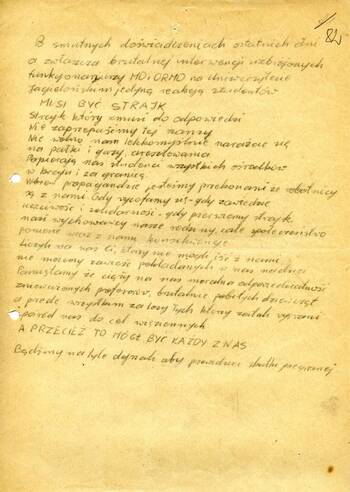 82
W smutnych doświadczeniach ostatnich dni
a zwłaszcza brutalnej interwencji uzbrojonych
funkcjonariuszy MO i ORMO na Uniwersytecie
Jagiellońskim jedyną reakcją studentów
MUSI BYĆ STRAJK
Strajk który zmusi do odpowiedzi
Nie zaprzepaśćmy tej szansy
Nie wolno nam lekkomyślnie narażać się
na pałki i gazy, aresztowania
Popierają nas studenci wszystkich ośrodków
w kraju i za granicą.
Wbrew propagandzie jesteśmy przekonani że robotnicy
są z nami. Gdy wycofamy się - gdy zawiedzie
uczciwość i solidarność - gdy pierwszy strajk
nasi wychowawcy nasze rodziny, całe społeczeństwo
poniesie wraz z nami konsekwencje
liczyli na nas Ci, którzy nie mogli iść z nami
nie możemy zawieść pokładanych w nas nadziei
Pamiętajmy że ciąży na nas moralna odpowiedzialność
znieważonych profesorów, brutalnie pobitych dziewcząt
a przede wszystkim za losy tych którzy zostali wyrwani
spośród nas do cel więziennych
A PRZECIEŻ TO MÓGŁ BYĆ KAŻDY Z NAS
Bądźmy na tyle dojrzali aby prowadzić słuszną